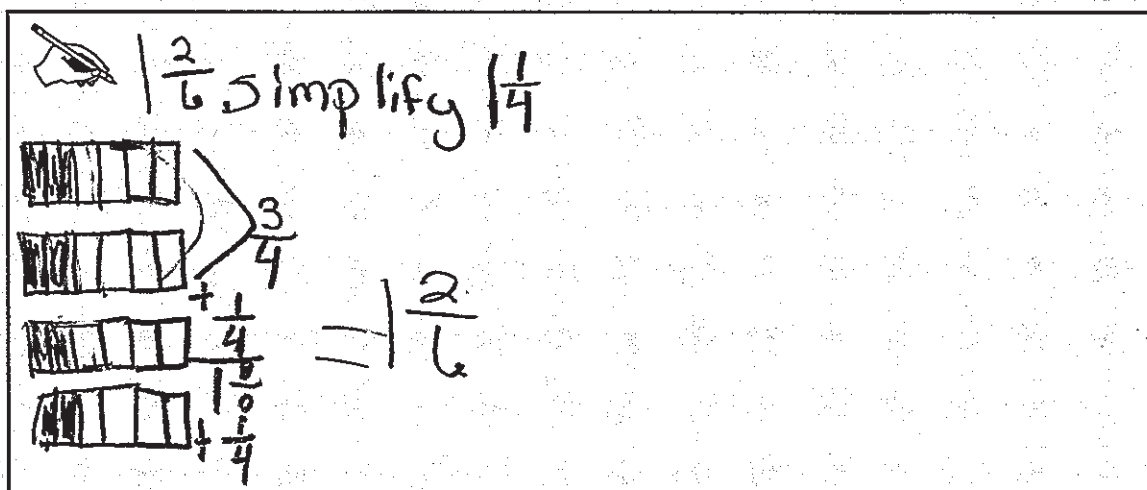 1 2/6 simplify 1 1/4
3/4
+ 1/4
1 0/0
+ 1/4
= 1 2/6